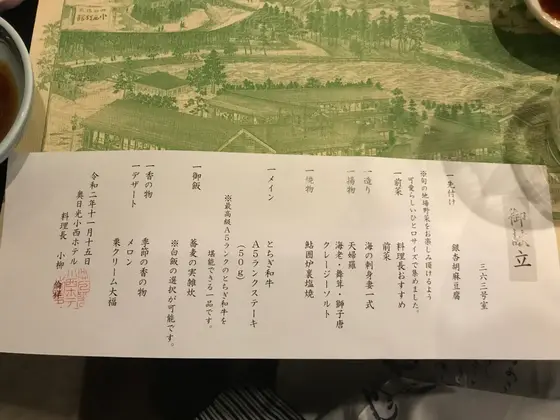 御献立
三六三号室
一先付け
銀杏胡麻豆腐
※旬の地場野菜をお楽しみ頂けるよう
可愛らしいひと口サイズで集めました。
一前菜
料理長おすすめ
前菜
一造り
海の刺身妻一式
一揚物
天婦羅
海老・舞茸・獅子唐
クレージーソルト
一焼物
鮎囲炉裏塩焼
一メイン
とちぎ和牛
A5ランクステーキ
(50g)
※最高級A5ランクのとちぎ和牛を
堪能できる一品です。
一御飯
蕎麦の実雑炊
※白飯の選択が可能です。
一香の物
季節の香の物
一デザート
メロン
栗クリーム大福
令和二年十一月十五日
奥日光小西ホテル
料理長 小柳